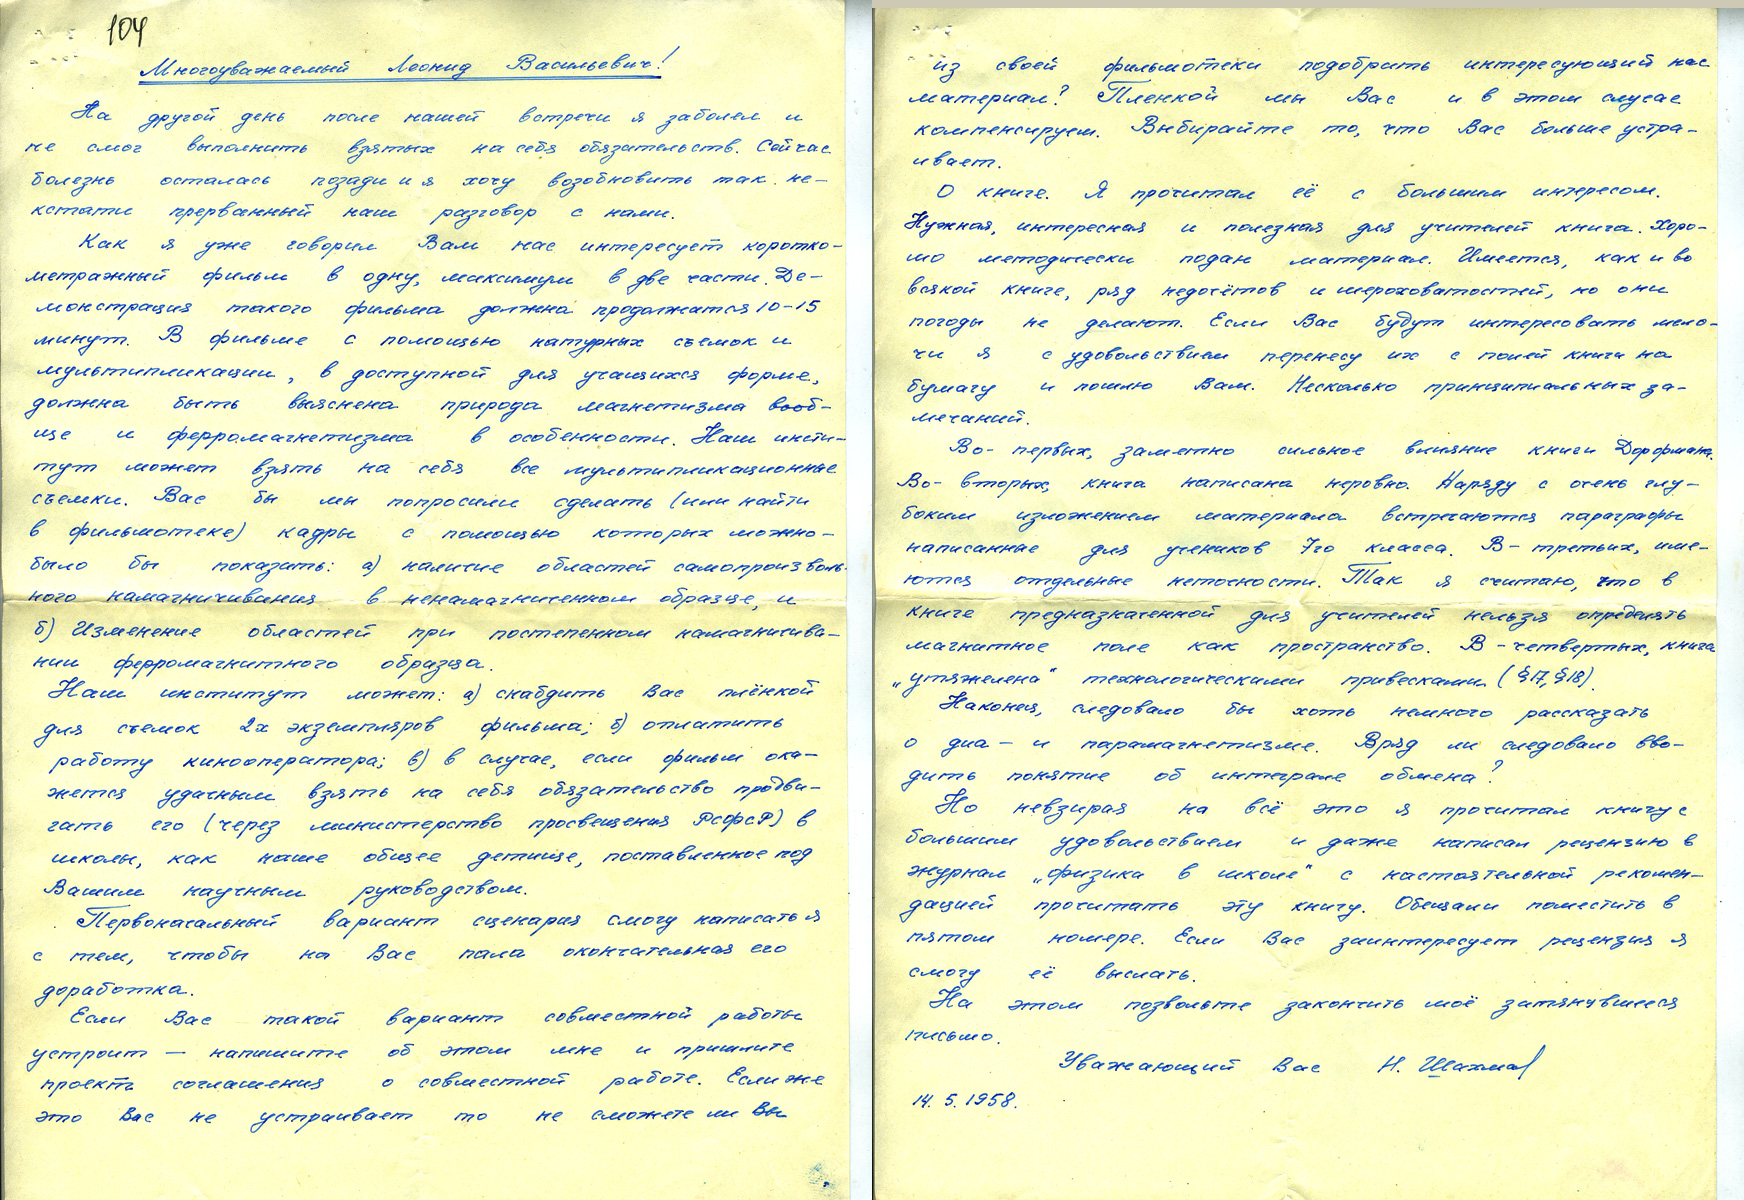 104
Многоуважаемый Леонид Васильевич!
На другой день после нашей встречи я заболел и
не смог выполнить взятых на себя обязательств. Сейчас
болезнь осталась позади и я хочу возобновить так не-
кстати прерванный наш разговор с нами.
Как я уже говорил Вам нас интересует коротко-
метражный фильм в одну, максимум в две части. Де-
монстрация такого фильма должна продолжатся 10-15
минут. В фильме с помощью натурных съемок и
мультипликации, в доступной для учащихся форме,
должна быть выяснена природа магнетизма вооб-
ще и ферромагнетизма в особенности. Наш инсти-
тут может взять на себя все мультипликационные
съемки. Вас бы мы попросили сделать (или найти
в фильмотеке) кадры с помощью которых можно-
было бы показать: а) наличие областей самопроизволь-
ного намагничивания в ненамагниченном образце, и
б) Изменение областей при постепенном намагничива-
нии ферромагнитного образца.
Наш институт может: а) снабдить Вас плёнкой
для съемок 2х экземпляров фильма; б) оплатить
работу кинооператора; в) в случае, если фильм ока-
жется удачным взять на себя обязательство продви-
гать его (через министерство просвещения РСФСР) в
школы, как наше общее детище, поставленное под
Вашим научным руководством.
Первоначальный вариант сценария смогу написать я
с тем, чтобы на Вас пала окончательная его
доработка.
Если Вас такой вариант совместной работы
устроит — напишите об этом мне и пришлите
проект соглашения о совместной работе. Если же
это Вас не устраивает то не сможете ли Вы
из своей фильмотеки подобрать интересующий нас
материал? Пленкой мы Вас и в этом случае
компенсируем. Выбирайте то, что Вас больше устра-
ивает.
О книге. Я прочитал её с большим интересом.
Нужная, интересная и полезная для учителей книга. Хоро-
шо методически подан материал. Имеется, как и во
всякой книге, ряд недочётов и шероховатостей, но они
погоды не делают. Если Вас будут интересовать мело-
чи я с удовольствием перенесу их с полей книги на
бумагу и пошлю Вам. Несколько принципиальных за-
мечаний.
Во-первых, заметно сильное влияние книги Дорфмана.
Во-вторых, книга написана неровно. Наряду с очень глу-
боким изложением материала встречаются параграфы
написанные для учеников 7го класса. В-третьих, име-
ются отдельные неточности. Так я считаю, что в
книге предназначенной для учителей нельзя определять
магнитное поле как пространство. В-четвертых, книга
„утяжелена" технологическими привесками (§17, §18).
Наконец, следовало бы хоть немного рассказать
о диа- и парамагнетизме. Вряд ли следовало вво-
дить понятие об интеграле обмена?
Но невзирая на всё это я прочитал книгу с
большим удовольствием и даже написал рецензию в
журнал „физика в школе" с настоятельной рекомен-
дацией прочитать эту книгу. Обещали поместить в
пятом номере. Если Вас заинтересует рецензия я
смогу её выслать.
На этом позвольте закончить моё затянувшееся
письмо.
Уважающий Вас Н. Шахма
14. 5. 1958.